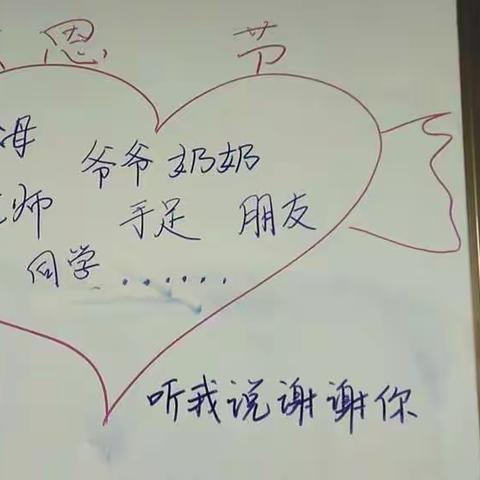 恩 节
母 爷爷 奶奶
师 手足 朋友
同学......
听我说谢谢你